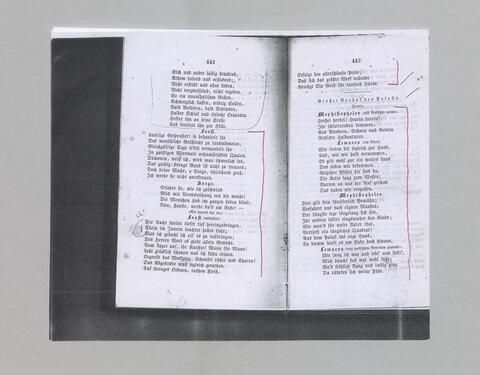 442
Sich und andre lästig drückend,
Athem holend und erstickend;
Nicht erstickt und ohne Leben,
Nicht verzweifelnd, nicht ergeben.
So ein unaufhaltsam Rollen,
Schmerzlich Lassen, widrig Sollen,
Bald Befreien, bald Erdrücken,
Halber Schlaf und schlecht Erquicken
Heftet ihn an seine Stelle
Und bereitet ihn zur Hölle.
Faust.
Unselige Gespenster! so behandelt ihr
Das menschliche Geschlecht zu tausendmalen;
Gleichgültige Tage selbst verwandelt ihr
In garstigen Wirrwarr netzumstrickter Qualen.
Dämonen, weiß ich, wird man schwerlich los,
Das geistig-strenge Band ist nicht zu trennen;
Doch deine Macht, o Sorge, schleichend groß,
Ich werde sie nicht anerkennen.
Sorge.
Erfahre sie, wie ich geschwind
Mich mit Verwünschung von dir wende!
Die Menschen sind im ganzen Leben blind,
Nun, Fauste, werde du's am Ende!
Faust
Die Nacht scheint tiefer tief hereinzudringen,
Allein im Innern leuchtet helles Licht;
Was ich gedacht ich eil' es zu vollbringen;
Des Herren Wort es giebt allein Gewicht.
Vom Lager auf, ihr Knechte! Mann für Mann!
Laßt glücklich schauen was ich kühn ersann.
Ergreift das Werkzeug, Schaufel rührt und Spaten!
Das Abgesteckte muß sogleich gerathen.
Auf strenges Ordnen, raschen Fleiß,
443
Erfolgt der allerschönste Preis;
Daß sich das größte Werk vollende
Genügt Ein Geist für tausend Hände.
Großer Vorhof des Palasts.
Fackeln.
Mephistopheles
Herbei, herbei! Herein, herein!
Ihr schlotternden Lemuren,
Aus Bändern, Sehnen und Gebein
Geflickte Halbnaturen.
Lemuren
Wir treten dir sogleich zur Hand,
Und, wie wir halb vernommen,
Es gilt wohl gar ein weites Land
Das sollen wir bekommen.
Gespitzte Pfähle die sind da,
Die Kette lang zum Messen,
Warum an uns der Ruf geschah
Das haben wir vergessen.
Mephistopheles.
Hier gilt kein künstlerisch Bemühn;
Verfahret nur nach eignen Maaßen;
Der Längste lege längelang sich hin,
Ihr andern lüftet ringsumher den Rasen;
Wie man's für unsre Väter that,
Vertieft ein längliches Quadrat!
Aus dem Palast ins enge Haus,
So dumm läuft es am Ende doch hinaus.
Lemuren
Wie jung ich war und lebt' und liebt',
Mich däucht das war wohl süße,
Wo's fröhlich klang und lustig ging
Da rührten sich meine Füße.